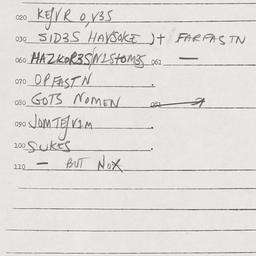 020 KEJVR O,V3S
030 SID3S HAVSOKE )+ FARFASTN
060 HAZKOR3S/N1STOM3S 061 —
070 OPFASTN .
080 GOTS NOMEN 081
090 JOMTEJV1M .
100 SUKES .
110 — BUT NOX